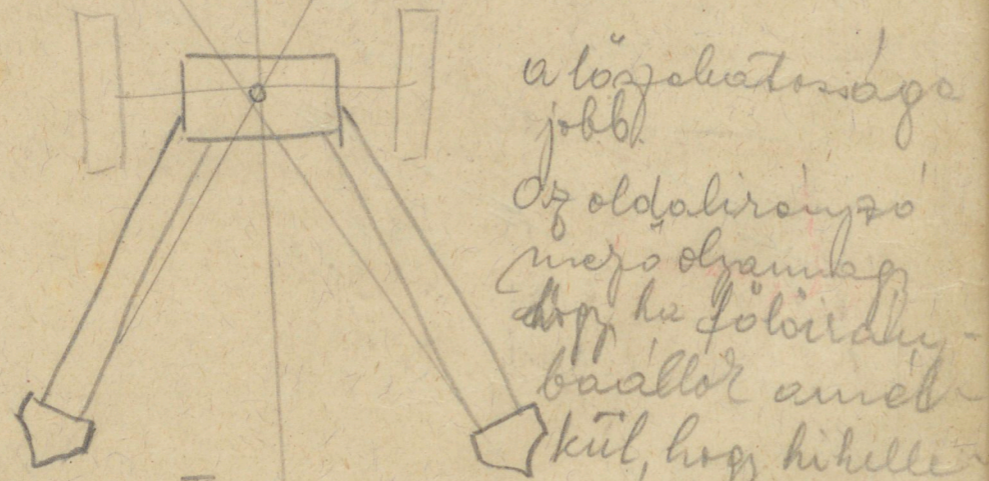 a lőszabatossága
jobb.
Az oldalirányzó
mező olyan nagy
hogy ha főlőirány-
baállok anél-
kül, hogy kikelle